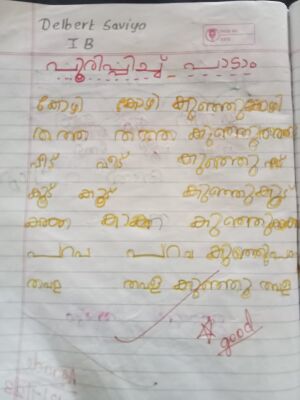 Delbert Saviyo
I B
പൂരിപ്പിച്ച് പാടാം
കോഴി കോഴി കുഞ്ഞുകോഴി
തത്ത തത്ത കുഞ്ഞുതത്ത
വീട് വീട് കുഞ്ഞു വീട്
കൂട് കൂട് കുഞ്ഞുകൂട്
കാക്ക കാക്ക കുഞ്ഞുകാക്ക
പറവ പറവ കുഞ്ഞുപറവ
തവള തവള കുഞ്ഞു തവള
good